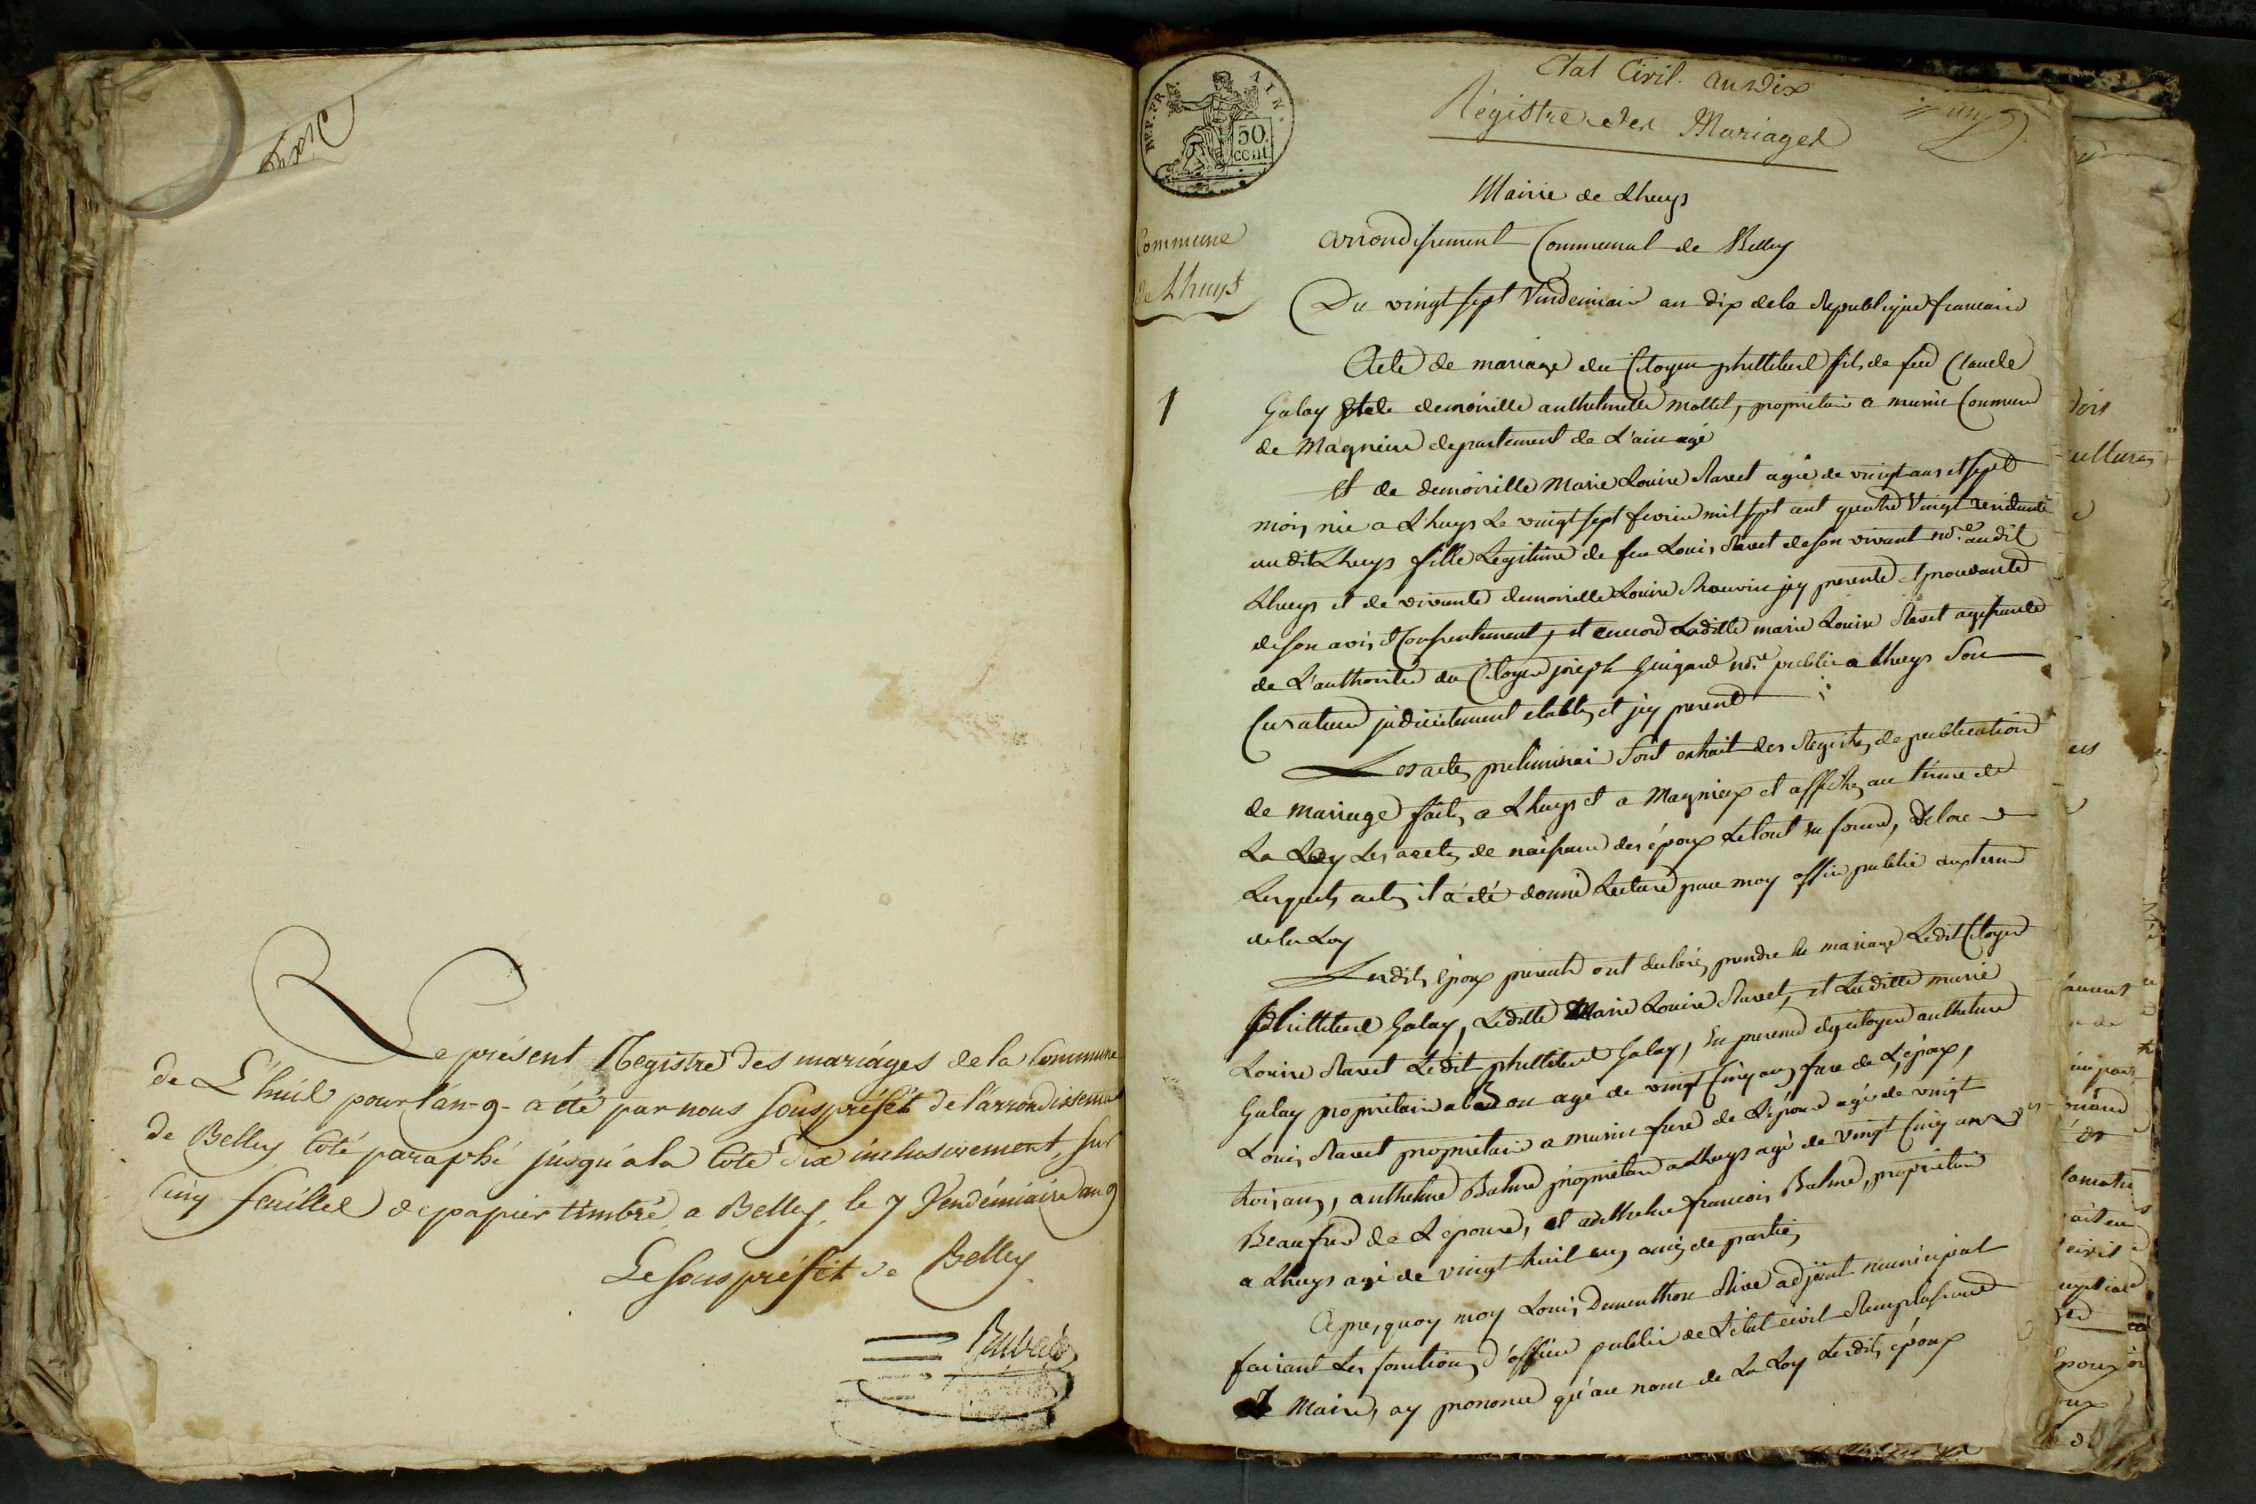 Le présent Registre des mariages de la Commune
de L'huil pour l'an-9- a été par nous sous préfet de l'arrondissement
de Belley coté paraphé jusqu'a la cote dix inclusivement, sur
cinq feuilles de papier timbré, a Belley, le 7 Vendémiaire an 9
Le sous préfet de Belley
REP. FRA
50
cent
Etat Civil. an Dix
Régistre des Mariages
un
Commune
de Lhuys
Mairie de Lhuys
arrondissement Communal de Belley
Du vingt sept Vendemiair an dix de la Republique francaise
1
Acte de mariage du Citoyen philtibert fils de feu Claude
Galay et de demoiselle anthelmette mottet, proprietaire a murin Commune
de Magnieu departement de L'ain agé
et de demoiselle Marie Louise Ravet agée de vingt ans et sept
mois, née a Lhuys Le vingt sept fevrier mil sept cent quatre Vingt residante
au dit Lhuys fille Legitime de feu Louis Ravet de son vivant nore. audit
Lhuys et de vivante demoiselle Louise jcy presente et
de son avis et Consentement, et encore Laditte marie Louise Ravet agissante
de L'authorité du Citoyen joseph Guigard nore. public a Lhuys son
Curateur judiciairement etabli, et jcy present
Les actes preliminai sont extrait des Registres de publication
de mariage faites a Lhuys et a Magnieux et affiches au terme de
La Loy Les actes de naissance des époux Le tout en forme, de
Lesquels actes il a été donné Lecture par moy officier public au terme
de la Loy
Lesdits époux presents ont declaré prendre en mariage Ledit Citoyen
philtibert Galay, Laditte Marie Louise Ravet, et Laditte marie
Louise Ravet Ledit philtibert Galay, en presence des citoyen anthelme
Galay proprietaire a agé de vingt cinq ans frere de L'époux,
Louis Ravet proprietaire a murin frere de L'épouse agé de vingt
trois ans, anthelme Balme proprietaire a Lhuys agé de vingt cinq ans
Beaufrere de L'epouse, et anthelme francois Balme, proprietaire
a Lhuys agé de vingt huit ans amis de parties
Apres quoy moy Louis Dumenthon Rive adjoint municipal
faisant Les fonctions d'officier public de L'etat civil Remplassant
Le Maire, ay prononcé qu'au nom de La Loy Lesdits époux